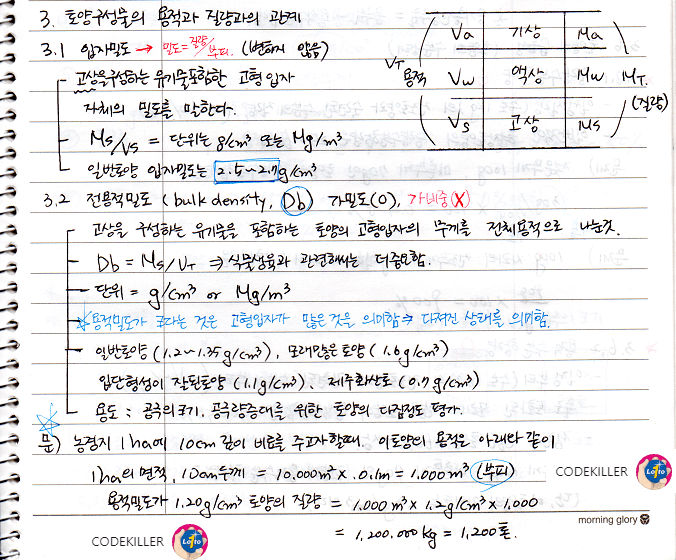 3. 토양구성물의 용적과 질량과의 관계
3.1 입자밀도 → 밀도=질량/부피. (변하지 않음)
고상을구성하는 유기물포함한 고형입자
자체의 밀도를 말한다.
Ms/Vs = 단위는 g/cm³ 또는 Mg/m³
일반토양 입자밀도는 2.5~2.7 g/cm³
VT 용적
Va 기상 Ma
Vw 액상 Mw
Vs 고상 Ms
MT. (질량)
3.2 전용적밀도 (bulk density, Db) 가밀도(O), 가비중(X)
고상을 구성하는 유기물을 포함하는 토양의 고형입자의 무게를 전체용적으로 나눈것.
Db = Ms/VT ⇒ 식물생육과 관련해서는 더중요함.
단위 = g/cm³ or Mg/m³
용적밀도가 크다는 것은 고형입자가 많은것을 의미함⇒ 다져진 상태를 의미함.
일반토양 (1.2~1.35g/cm³), 모래많은토양 (1.6g/cm³)
입단형성이 잘된토양 (1.1g/cm³), 제주화산토 (0.7g/cm³)
용도 : 공극의크기, 공극량증대를 위한 토양의 다짐정도 평가.
문) 농경지 1ha에 10cm 깊이 비료를 주고자할때. 이토양의 용적은 아래와 같이
1ha의 면적, 10cm두께 = 10,000m² × 0.1m = 1,000m³ (부피)
용적밀도가 1.20g/cm³ 토양의 질량 = 1,000m³ × 1.2g/cm³ × 1,000
= 1,200,000kg = 1,200톤.
CODEKILLER Lotto
morning glory
CODEKILLER Lotto